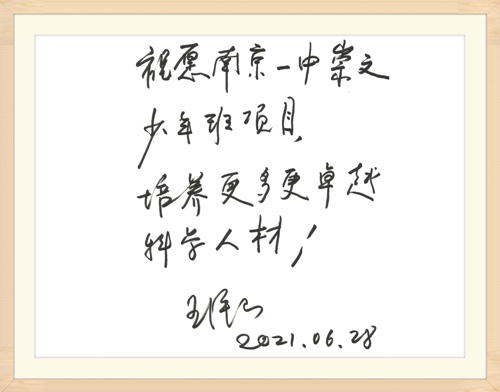 祝愿南京一中崇文
少年班项目,
培养更多更卓越
科学人材!
2021.06.28